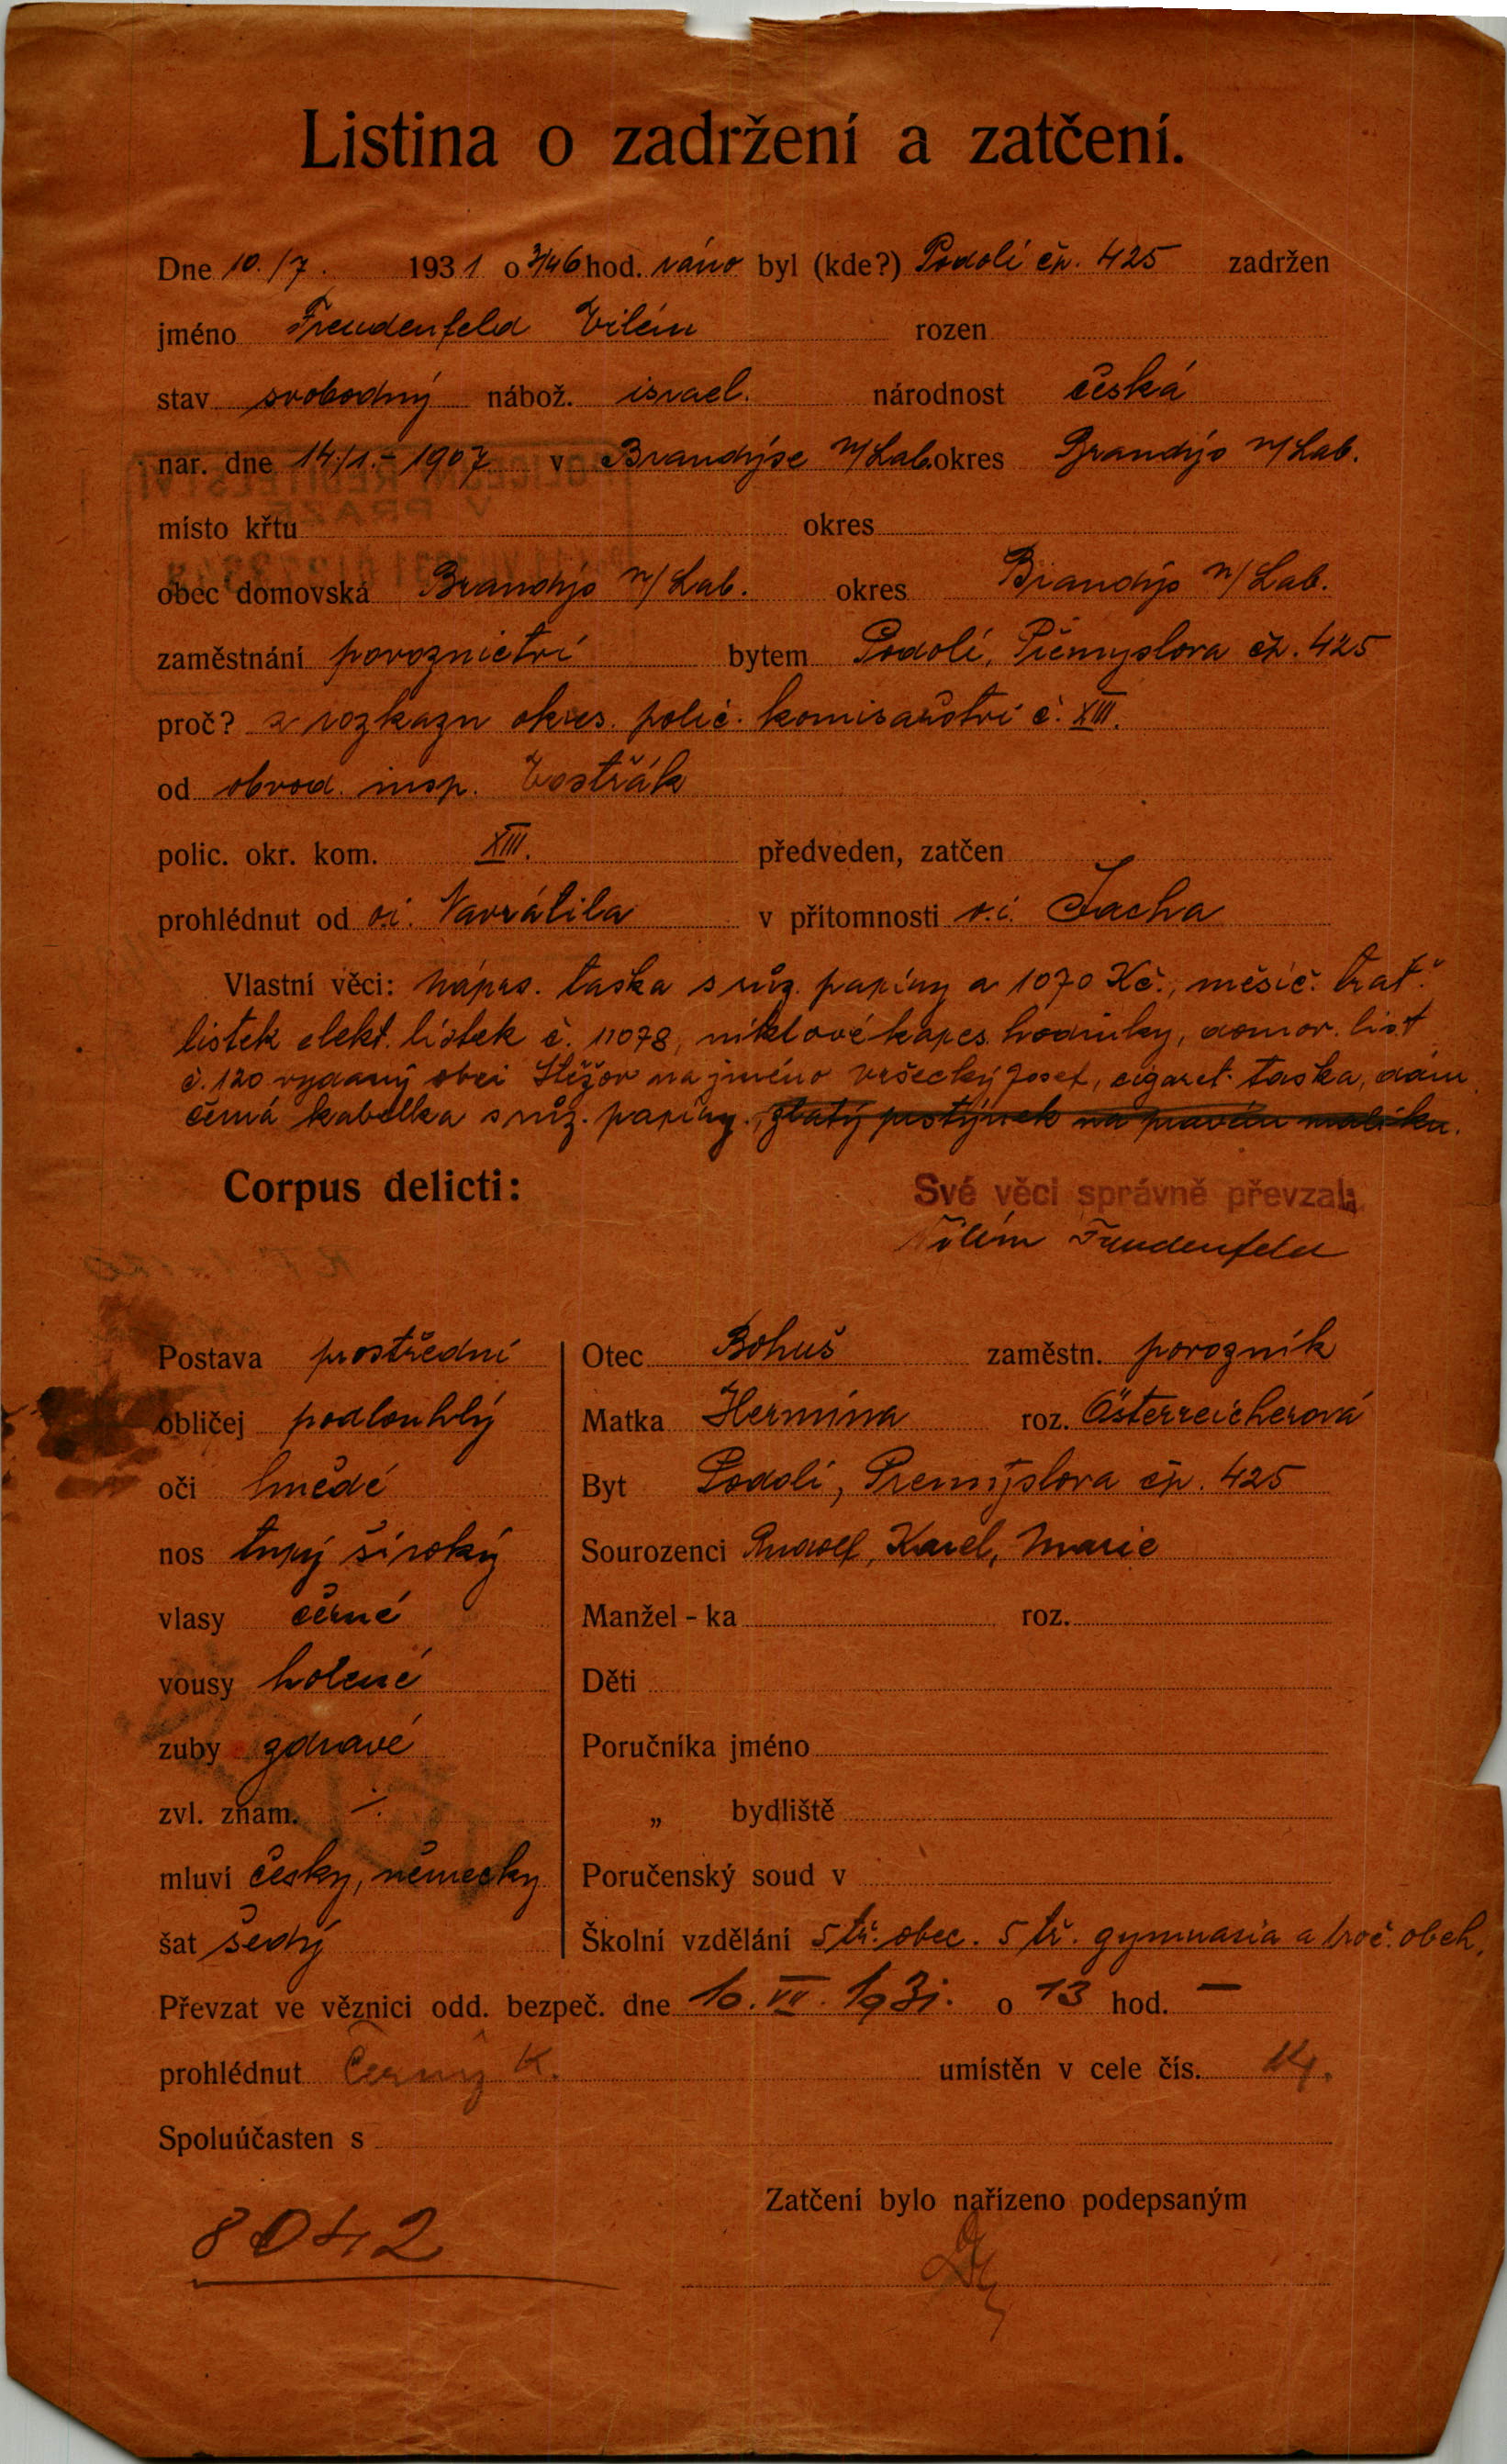 Listina o zadržení a zatčení.
Dne 10./7. 1931 o 3/46 hod. ráno byl (kde?) Podolí čp. 425 zadržen
jméno Freudenfeld Vilém rozen
stav svobodný nábož. israel. národnost česká
nar. dne 14./1.- 1907 v Brandýse n/Lab. okres Brandýs n/Lab.
místo křtu okres
obec domovská Brandýs n/Lab. okres Brandýs n/Lab.
zaměstnání povoznictví bytem Podolí, Přemyslova čp. 425
proč? z rozkazu okres. polic. komisařství č. XIII.
od obvod. insp. Vostřák
polic. okr. kom. XIII. předveden, zatčen
prohlédnut od o.i. Navrátila v přítomnosti o.i. Jacha
Vlastní věci: náprs. taška s růz. papíry a 1070 Kč., měsíč. trať.
lístek elekt. lístek č. 11078, niklové kapes. hodinky, domov. list
č. 120 vydaný obcí Stěžov na jméno Vršecký Josef, cigaret. taška, dám.
černá kabelka s růz. papíry. zlatý prstýnek na pravém malíku.
Corpus delicti:
Své věci správně převzal:
Vilém Freudenfeld
Postava prostřední Otec Bohuš zaměstn. povozník
obličej podlouhlý Matka Hermína roz. Österreicherová
oči hnědé Byt Podolí, Přemyslova čp. 425
nos tupý široký Sourozenci Rudolf, Karel, Marie
vlasy černé Manžel - ka roz.
vousy holené Děti
zuby zdravé Poručníka jméno
zvl. znam. ./. „ bydliště
mluví česky, německy Poručenský soud v
šat šedý Školní vzdělání 5 tř. obec. 5 tř. gymnasia a 1roč. obch.
Převzat ve věznici odd. bezpeč. dne 10. VII. 1931. o 13 hod. —
prohlédnut Černý K. umístěn v cele čís. 14.
Spoluúčasten s
Zatčení bylo nařízeno podepsaným
8042